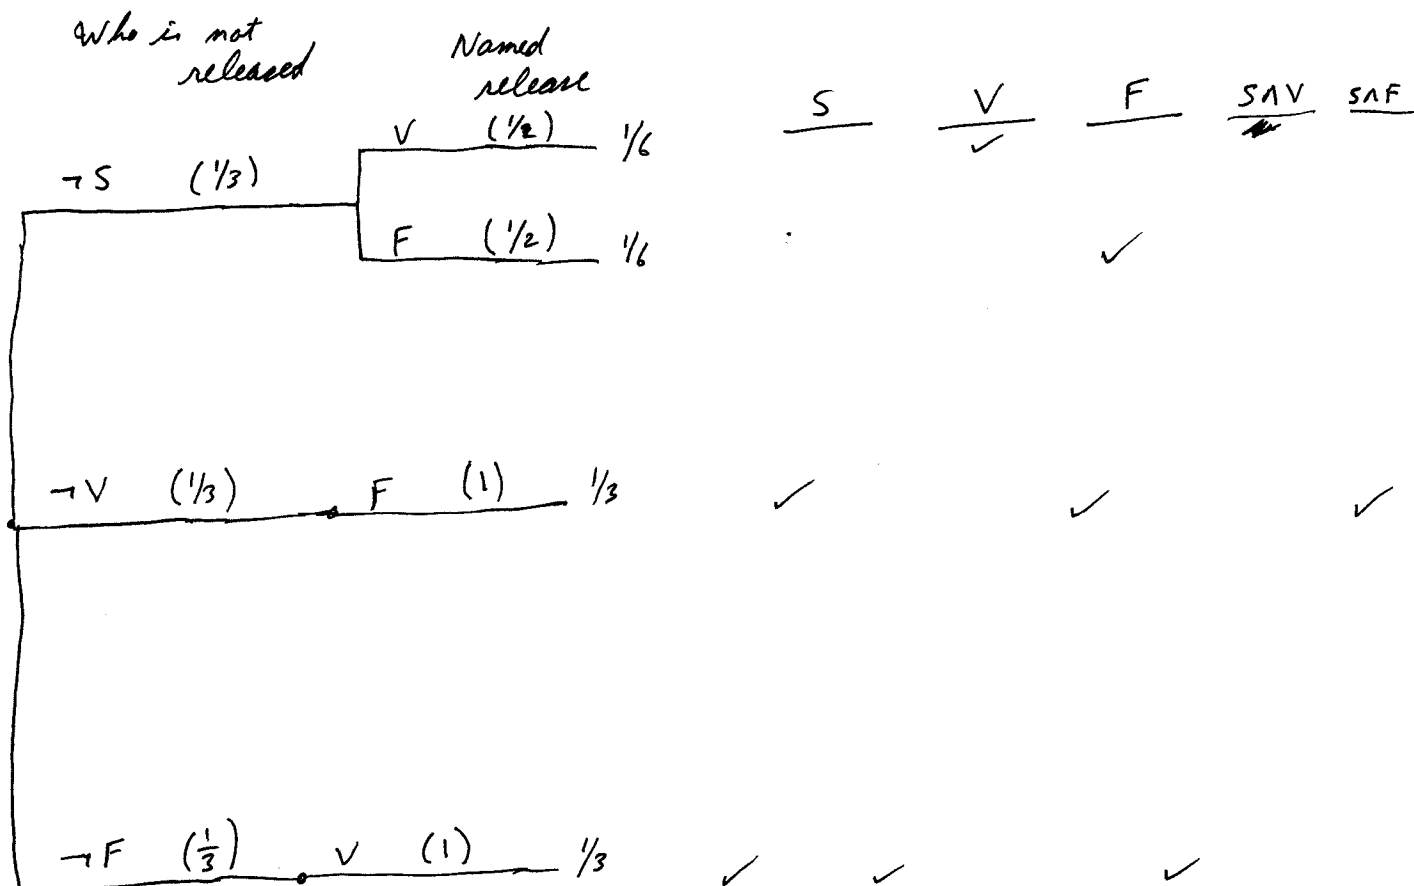 Who is not released
Named release
S V F S∧V S∧F
V (1/2) 1/6 ✓
¬S (1/3)
F (1/2) 1/6 ✓
¬V (1/3) F (1) 1/3 ✓ ✓ ✓
¬F (1/3) V (1) 1/3 ✓ ✓ ✓